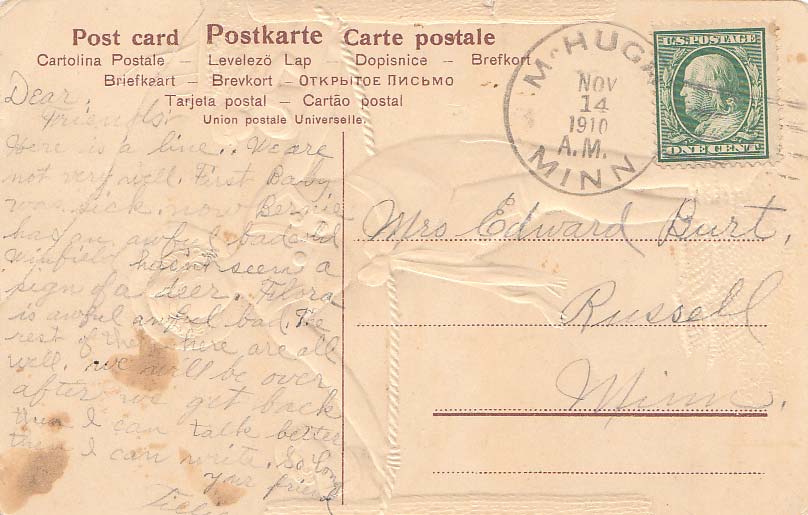 Post card Postkarte Carte postale
Cartolina Postale – Levelező Lap – Dopisnice – Brefkort
Briefkaart – Brevkort – Открытое Письмо
Tarjeta postal – Cartão postal
Union postale Universelle.
McHUGH
NOV
14
1910
A.M.
MINN
U.S. POSTAGE
ONE CENT
Dear,
friends
Here is a line. We are
not very well. First Baby
was sick. now Bernie
has an awful bad cold
Winfield hasn't seen a
sign of a deer. Flora
is awful awful bad. The
rest of the here are all
well. we will be over
after we get back
then I can talk better
then I can write. So long
your friend
Mrs Edward Burt,
Russell
Minn.